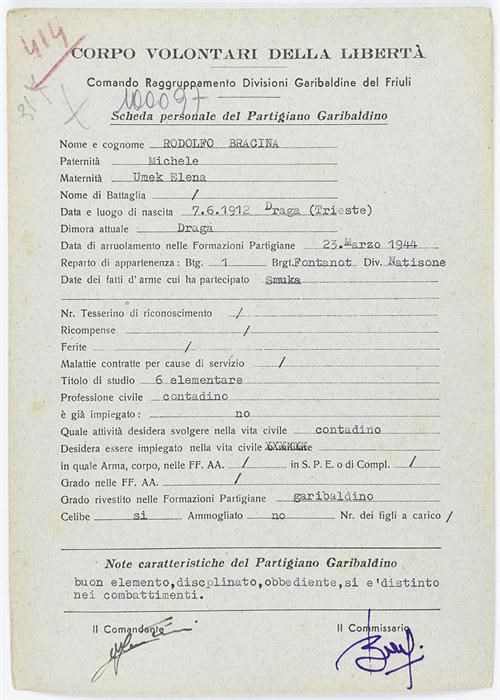 414
CORPO VOLONTARI DELLA LIBERTÀ
Comando Raggruppamento Divisioni Garibaldine del Friuli
100097
Scheda personale del Partigiano Garibaldino
Nome e cognome RODOLFO BRACINA
Paternità Michele
Maternità Umek Elena
Nome di Battaglia /
Data e luogo di nascita 7.6.1912 Draga (Trieste)
Dimora attuale Draga
Data di arruolamento nelle Formazioni Partigiane 23.Marzo 1944
Reparto di appartenenza: Btg. 1 Brgt.Fontanot Div. Natisone
Date dei fatti d'arme cui ha partecipato Smuka
Nr. Tesserino di riconoscimento /
Ricompense /
Ferite /
Malattie contratte per cause di servizio /
Titolo di studio 6 elementare
Professione civile contadino
è già impiegato: no
Quale attività desidera svolgere nella vita civile contadino
Desidera essere impiegato nella vita civile
in quale Arma, corpo, nelle FF. AA. / in S. P. E. o di Compl. /
Grado nelle FF. AA. /
Grado rivestito nelle Formazioni Partigiane garibaldino
Celibe si Ammogliato no Nr. dei figli a carico /
Note caratteristiche del Partigiano Garibaldino
buon elemento,discplinato,obbediente,si e'distinto
nei combattimenti.
Il Comandante Il Commissario